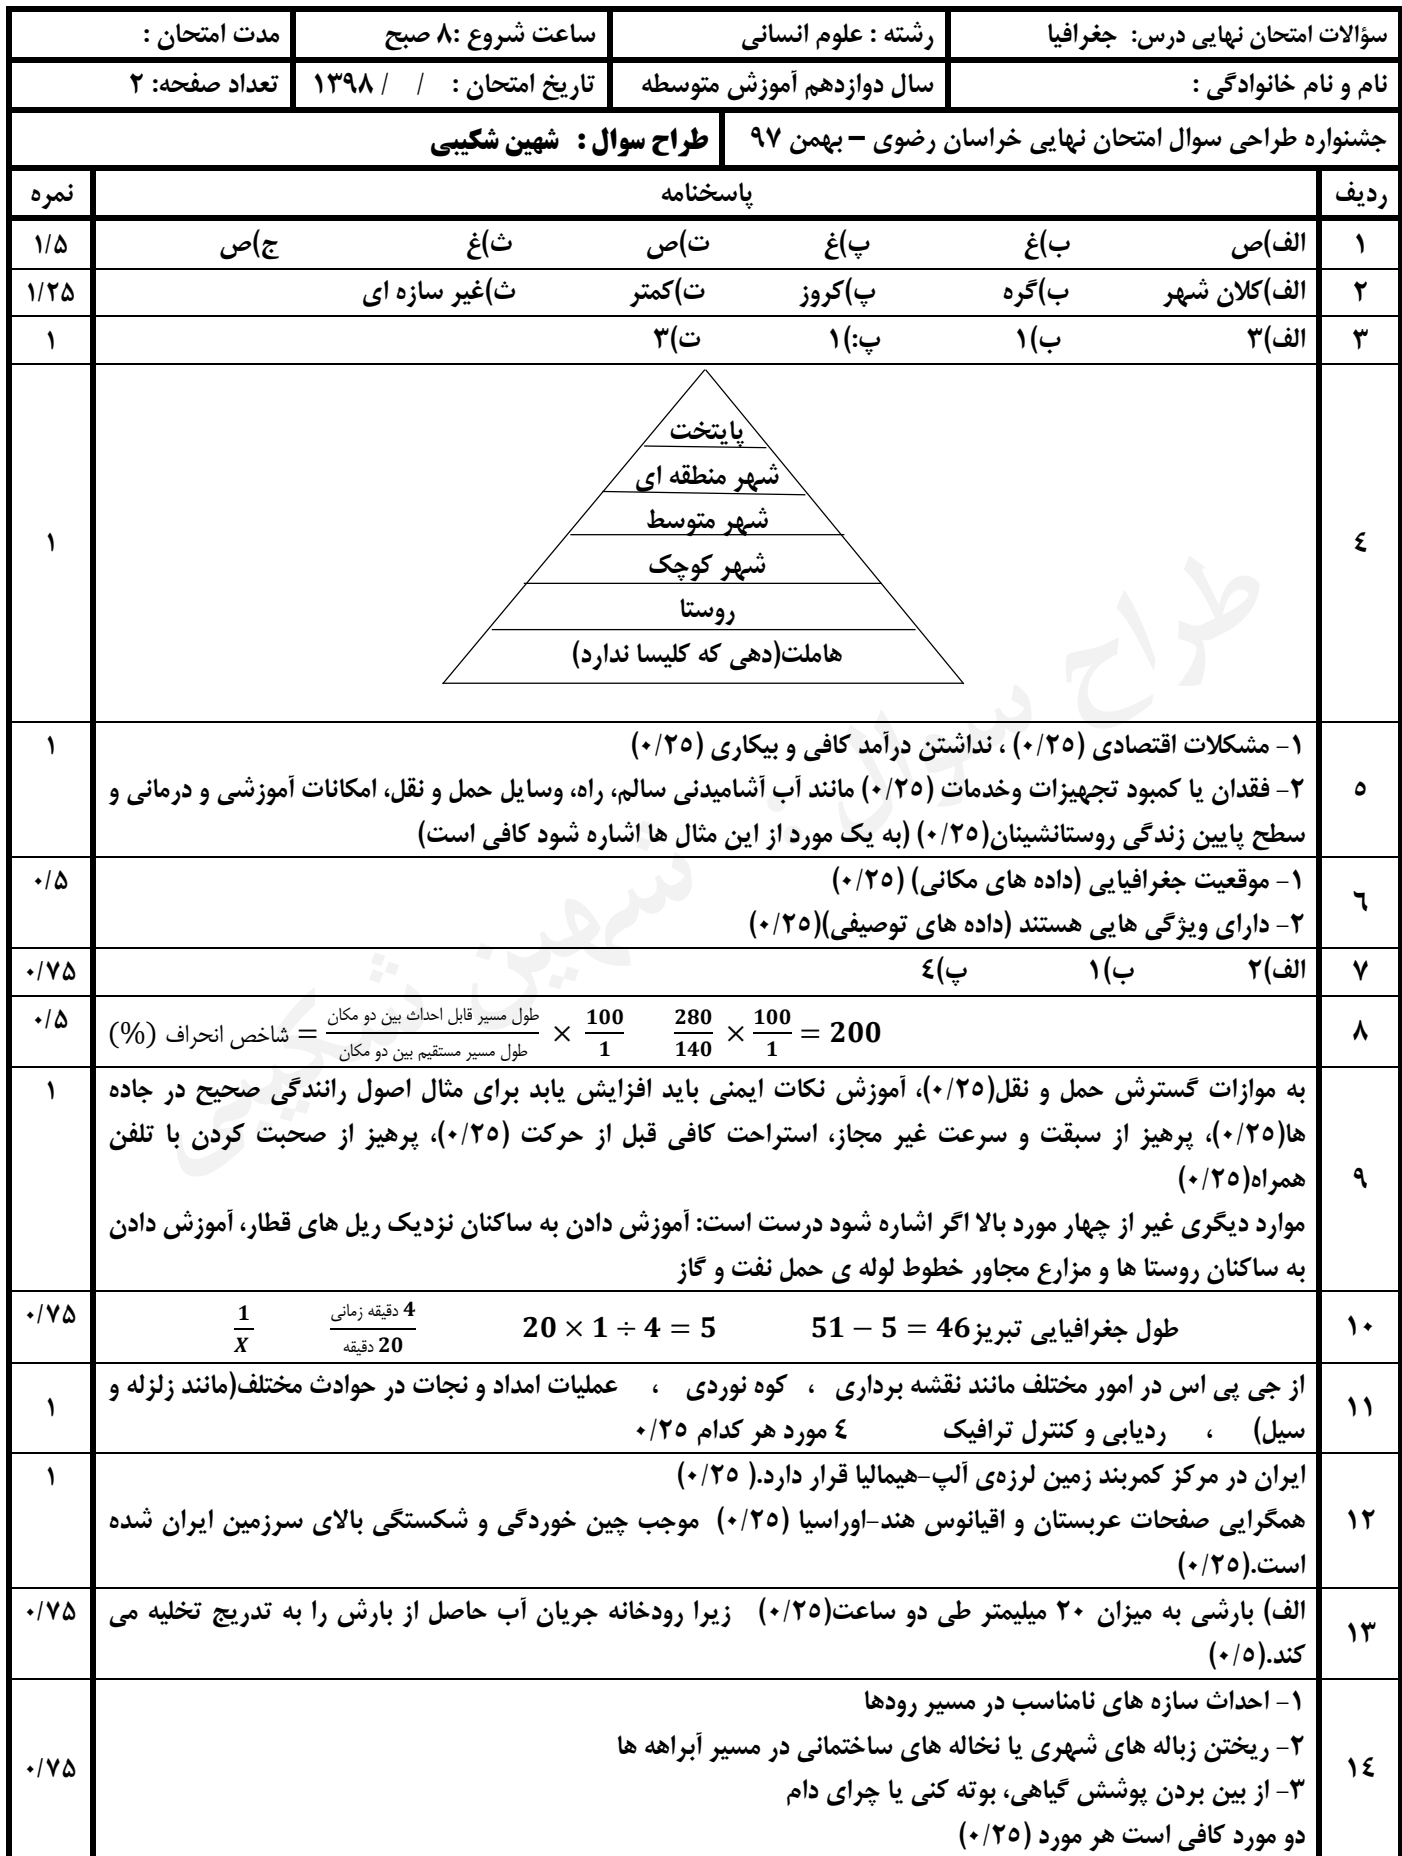 سؤالات امتحان نهایی درس: جغرافیا رشته : علوم انسانی ساعت شروع :۸ صبح مدت امتحان :
نام و نام خانوادگی : سال دوازدهم آموزش متوسطه تاریخ امتحان : / / ۱۳۹۸ تعداد صفحه: ۲
جشنواره طراحی سوال امتحان نهایی خراسان رضوی – بهمن ۹۷ طراح سوال : شهین شکیبی
ردیف پاسخنامه نمره
۱ الف)ص ب)غ پ)غ ت)ص ث)غ ج)ص ۱/۵
۲ الف)کلان شهر ب)گره پ)کروز ت)کمتر ث)غیر سازه ای ۱/۲۵
۳ الف)۳ ب)۱ پ:)۱ ت)۳ ۱
پایتخت
شهر منطقه ای
شهر متوسط
٤ ۱
شهر کوچک
روستا
هاملت(دهی که کلیسا ندارد)
۱- مشکلات اقتصادی (۰/۲٥) ، نداشتن درآمد کافی و بیکاری (۰/۲٥) ۱
٥ ۲- فقدان یا کمبود تجهیزات وخدمات (۰/۲٥) مانند آب آشامیدنی سالم، راه، وسایل حمل و نقل، امکانات آموزشی و درمانی و
سطح پایین زندگی روستانشینان(۰/۲٥) (به یک مورد از این مثال ها اشاره شود کافی است)
٦ ۱- موقعیت جغرافیایی (داده های مکانی) (۰/۲٥) ۰/۵
۲- دارای ویژگی هایی هستند (داده های توصیفی)(۰/۲٥)
۷ الف)۲ ب)۱ پ)٤ ۰/۷۵
۸ (%) شاخص انحراف = طول مسیر قابل احداث بین دو مکان / طول مسیر مستقیم بین دو مکان × 100/1 280/140 × 100/1 = 200 ۰/۵
به موازات گسترش حمل و نقل(۰/۲٥)، آموزش نکات ایمنی باید افزایش یابد برای مثال اصول رانندگی صحیح در جاده ۱
ها(۰/۲٥)، پرهیز از سبقت و سرعت غیر مجاز، استراحت کافی قبل از حرکت (۰/۲٥)، پرهیز از صحبت کردن با تلفن
۹ همراه(۰/۲٥)
موارد دیگری غیر از چهار مورد بالا اگر اشاره شود درست است: آموزش دادن به ساکنان نزدیک ریل های قطار، آموزش دادن
به ساکنان روستا ها و مزارع مجاور خطوط لوله ی حمل نفت و گاز
۱۰ طول جغرافیایی تبریز 51 − 5 = 46 20 × 1 ÷ 4 = 5 4 دقیقه زمانی / 20 دقیقه 1/X ۰/۷۵
۱۱ از جی پی اس در امور مختلف مانند نقشه برداری ، کوه نوردی ، عملیات امداد و نجات در حوادث مختلف(مانند زلزله و ۱
سیل) ، ردیابی و کنترل ترافیک ٤ مورد هر کدام ۰/۲٥
ایران در مرکز کمربند زمین لرزه‌ی آلپ-هیمالیا قرار دارد.( ۰/۲٥) ۱
۱۲ همگرایی صفحات عربستان و اقیانوس هند-اوراسیا (۰/۲٥) موجب چین خوردگی و شکستگی بالای سرزمین ایران شده
است.(۰/۲٥)
۱۳ الف) بارشی به میزان ۲۰ میلیمتر طی دو ساعت(۰/۲٥) زیرا رودخانه جریان آب حاصل از بارش را به تدریج تخلیه می ۰/۷۵
کند.(۰/٥)
۱- احداث سازه های نامناسب در مسیر رودها
۱٤ ۲- ریختن زباله های شهری یا نخاله های ساختمانی در مسیر آبراهه ها ۰/۷۵
۳- از بین بردن پوشش گیاهی، بوته کنی یا چرای دام
دو مورد کافی است هر مورد (۰/۲٥)
طراح سوال : شهین شکیبی